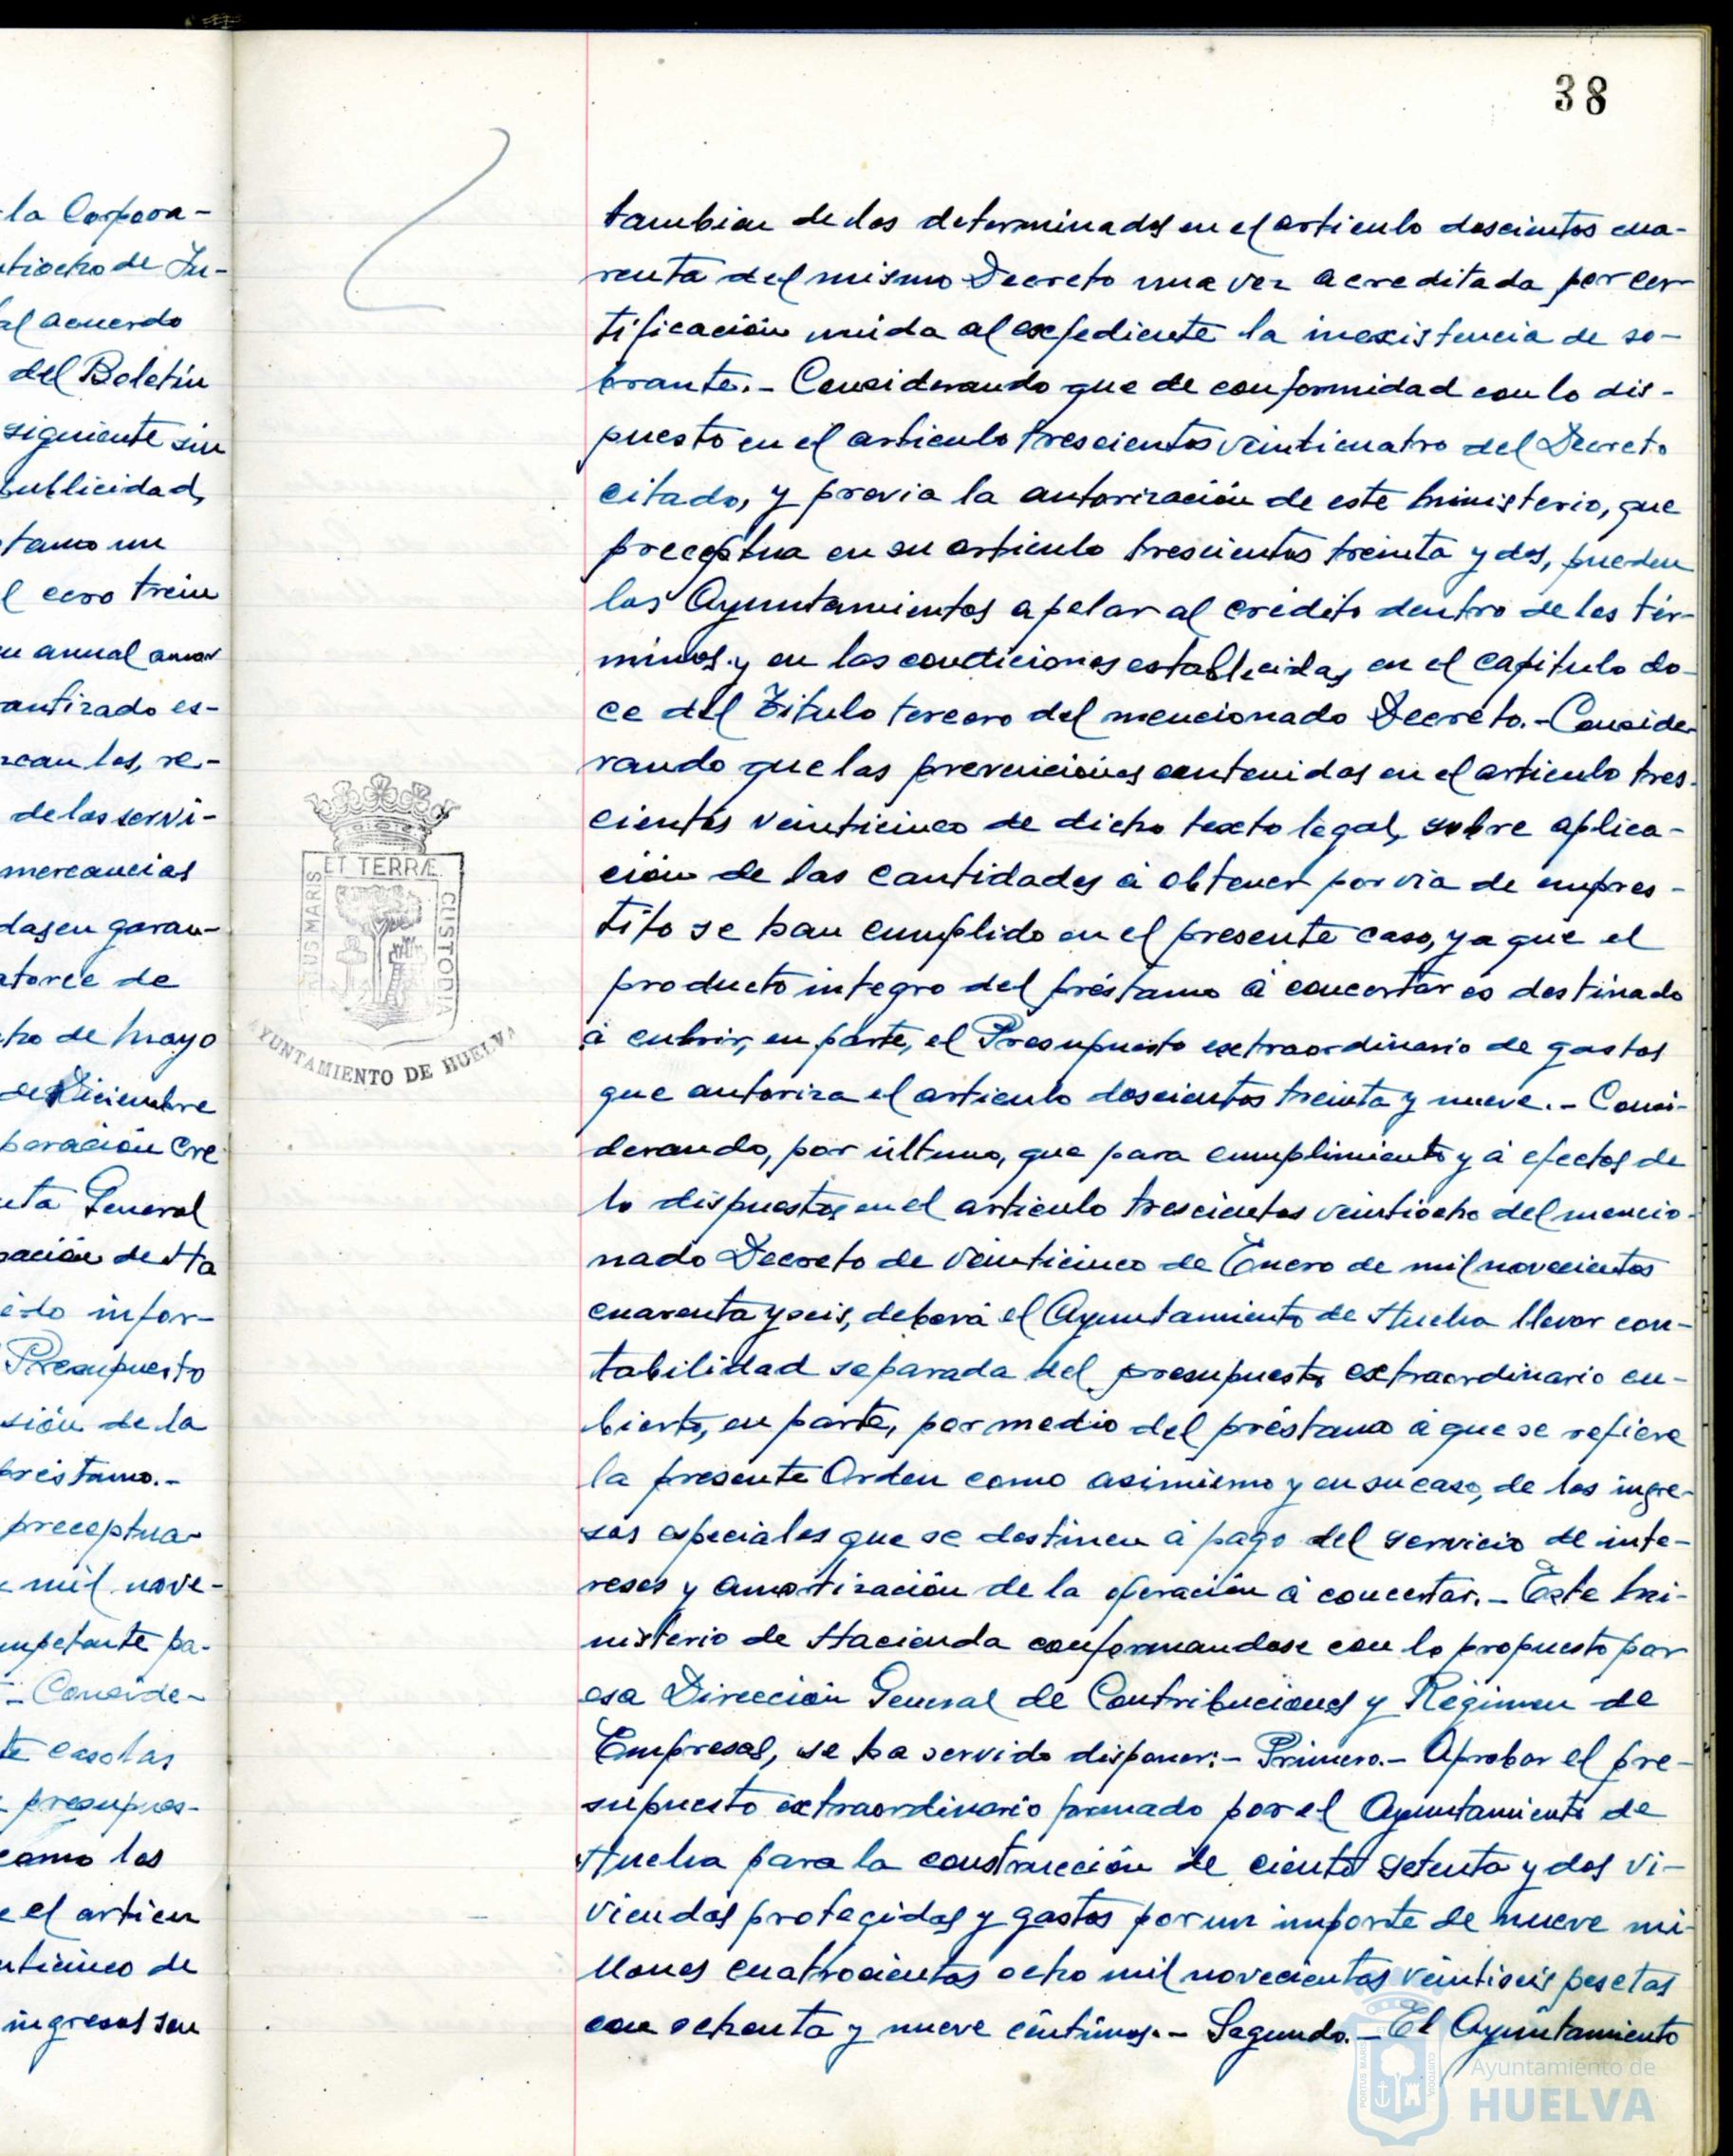 38
la Corpora-
tiocho de Ju-
al acuerdo
del Boletín
siguiente sin
publicidad,
tamo un
l cero trein
u anual amor
antizado es-
zcan los, re-
de los servi-
mercancias
das en garan-
atorce de
cho de Mayo
de Diciembre
poración cre
uta General
pación de Ha
ido infor-
Presupuesto
sión de la
préstamo.-
preceptua-
e mil nove-
mpetente pa-
- Conside-
te caso las
presupues-
como los
e el articu
nticinco de
ingresos sen
tambien de los determinados en el articulo doscientos cua-
renta del mismo Decreto una vez acreditada por cer-
tificación unida al expediente la inexistencia de so-
brante.- Considerando que de conformidad con lo dis-
puesto en el articulo trescientos veinticuatro del Decreto
citado, y previa la autorización de este Ministerio, que
preceptua en su articulo trescientos treinta y dos, pueden
los Ayuntamientos apelar al crédito dentro de los tér-
minos y en las condiciones establecidas en el capitulo do-
ce del Titulo tercero del mencionado Decreto.- Conside-
rando que las prevenciones contenidas en el articulo tres-
cientos veinticinco de dicho texto legal, sobre aplica-
ción de las cantidades á obtener por via de empres-
tito se han cumplido en el presente caso, ya que el
producto integro del préstamo á concertar es destinado
á cubrir, en parte, el Presupuesto extraordinario de gastos
que autoriza el articulo doscientos treinta y nueve.- Consi-
derando, por último, que para cumplimiento y á efectos de
lo dispuesto en el articulo trescientos veintiocho del mencio-
nado Decreto de veinticinco de Enero de mil novecientos
cuarenta y seis, deberá el Ayuntamiento de Huelva llevar con-
tabilidad separada del presupuesto extraordinario cu-
bierto, en parte, por medio del préstamo á que se refiere
la presente Orden como asimismo y en su caso, de los ingre-
sos especiales que se destinen á pago del servicio de inte-
reses y amortización de la operación á concertar.- Este Mi-
nisterio de Hacienda conformandose con lo propuesto por
esa Dirección General de Contribuciones y Régimen de
Empresas, se ha servido disponer:- Primero.- Aprobar el pre-
supuesto extraordinario formado por el Ayuntamiento de
Huelva para la construcción de ciento setenta y dos vi-
viendas protegidas y gastos por un importe de nueve mi-
llones cuatrocientos ocho mil novecientas veintiseis pesetas
con ochenta y nueve céntimos.- Segundo.- El Ayuntamiento
ET TERRÆ
TUS MARIS
CUSTODIA
AYUNTAMIENTO DE HUELVA
PORTUS MARIS
CUSTODIA
Ayuntamiento de
HUELVA